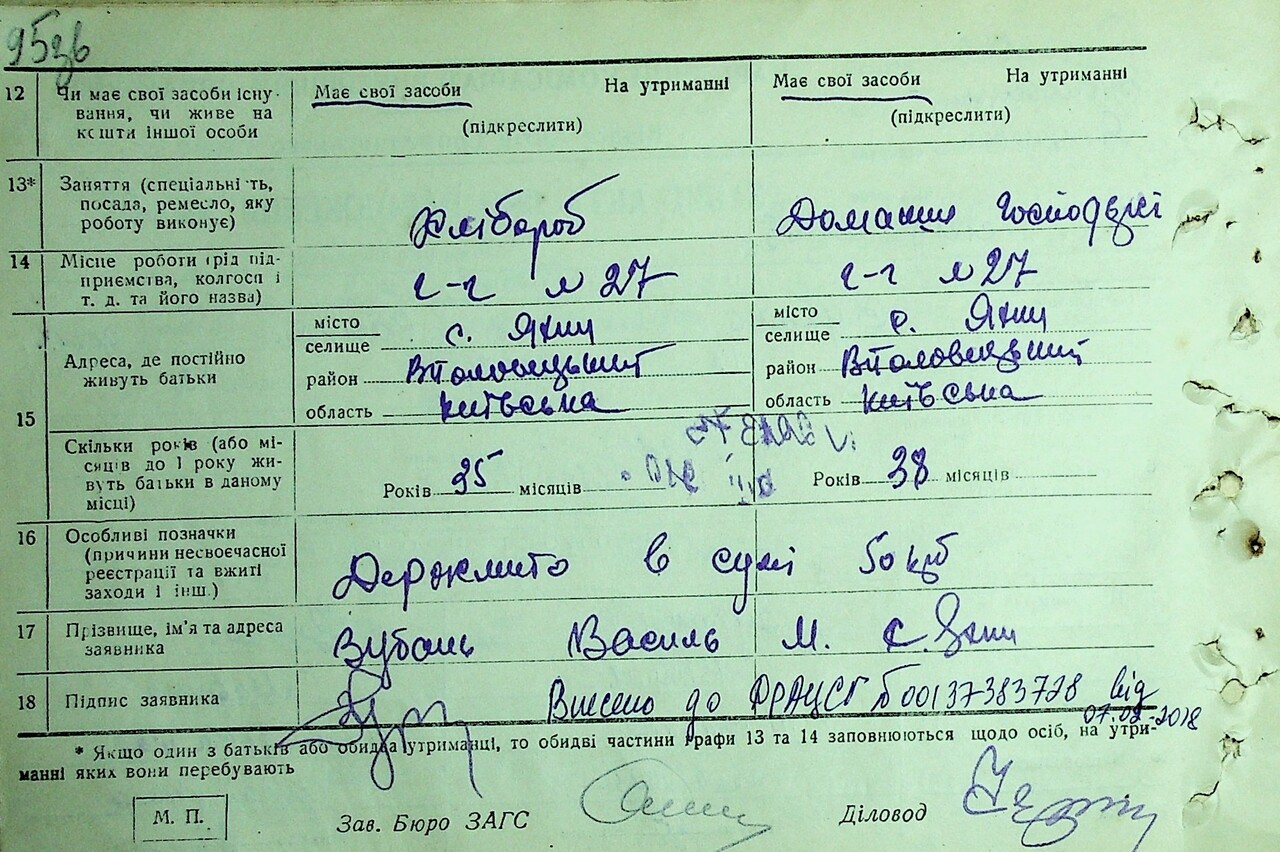 95зв
12 Чи має свої засоби існування, чи живе на кошти іншої особи
Має свої засоби На утриманні
(підкреслити)
Має свої засоби На утриманні
(підкреслити)
13* Заняття (спеціальність, посада, ремесло, яку роботу виконує)
Хлібороб
Домашнє господарст
14 Місце роботи (рід підприємства, колгосп і т. д. та його назва)
г-г № 27
г-г № 27
15 Адреса, де постійно живуть батьки
місто
селище
с.
район
область Київська
місто
селище
с.
район
область Київська
Скільки років (або місяців до 1 року живуть батьки в даному місці)
Років 35 місяців
Років 38 місяців
16 Особливі позначки (причини несвоєчасної реєстрації та вжиті заходи і інш.)
Держмито в сумі 50 крб
17 Прізвище, ім'я та адреса заявника
Зубань Василь М. с.
18 Підпис заявника
Внесено до ДРАЦСГ 00137383728 від
07.02.2018
* Якщо один з батьків або обидва утриманці, то обидві частини графи 13 та 14 заповнюються щодо осіб, на утри-
манні яких вони перебувають
М. П.
Зав. Бюро ЗАГС
Діловод